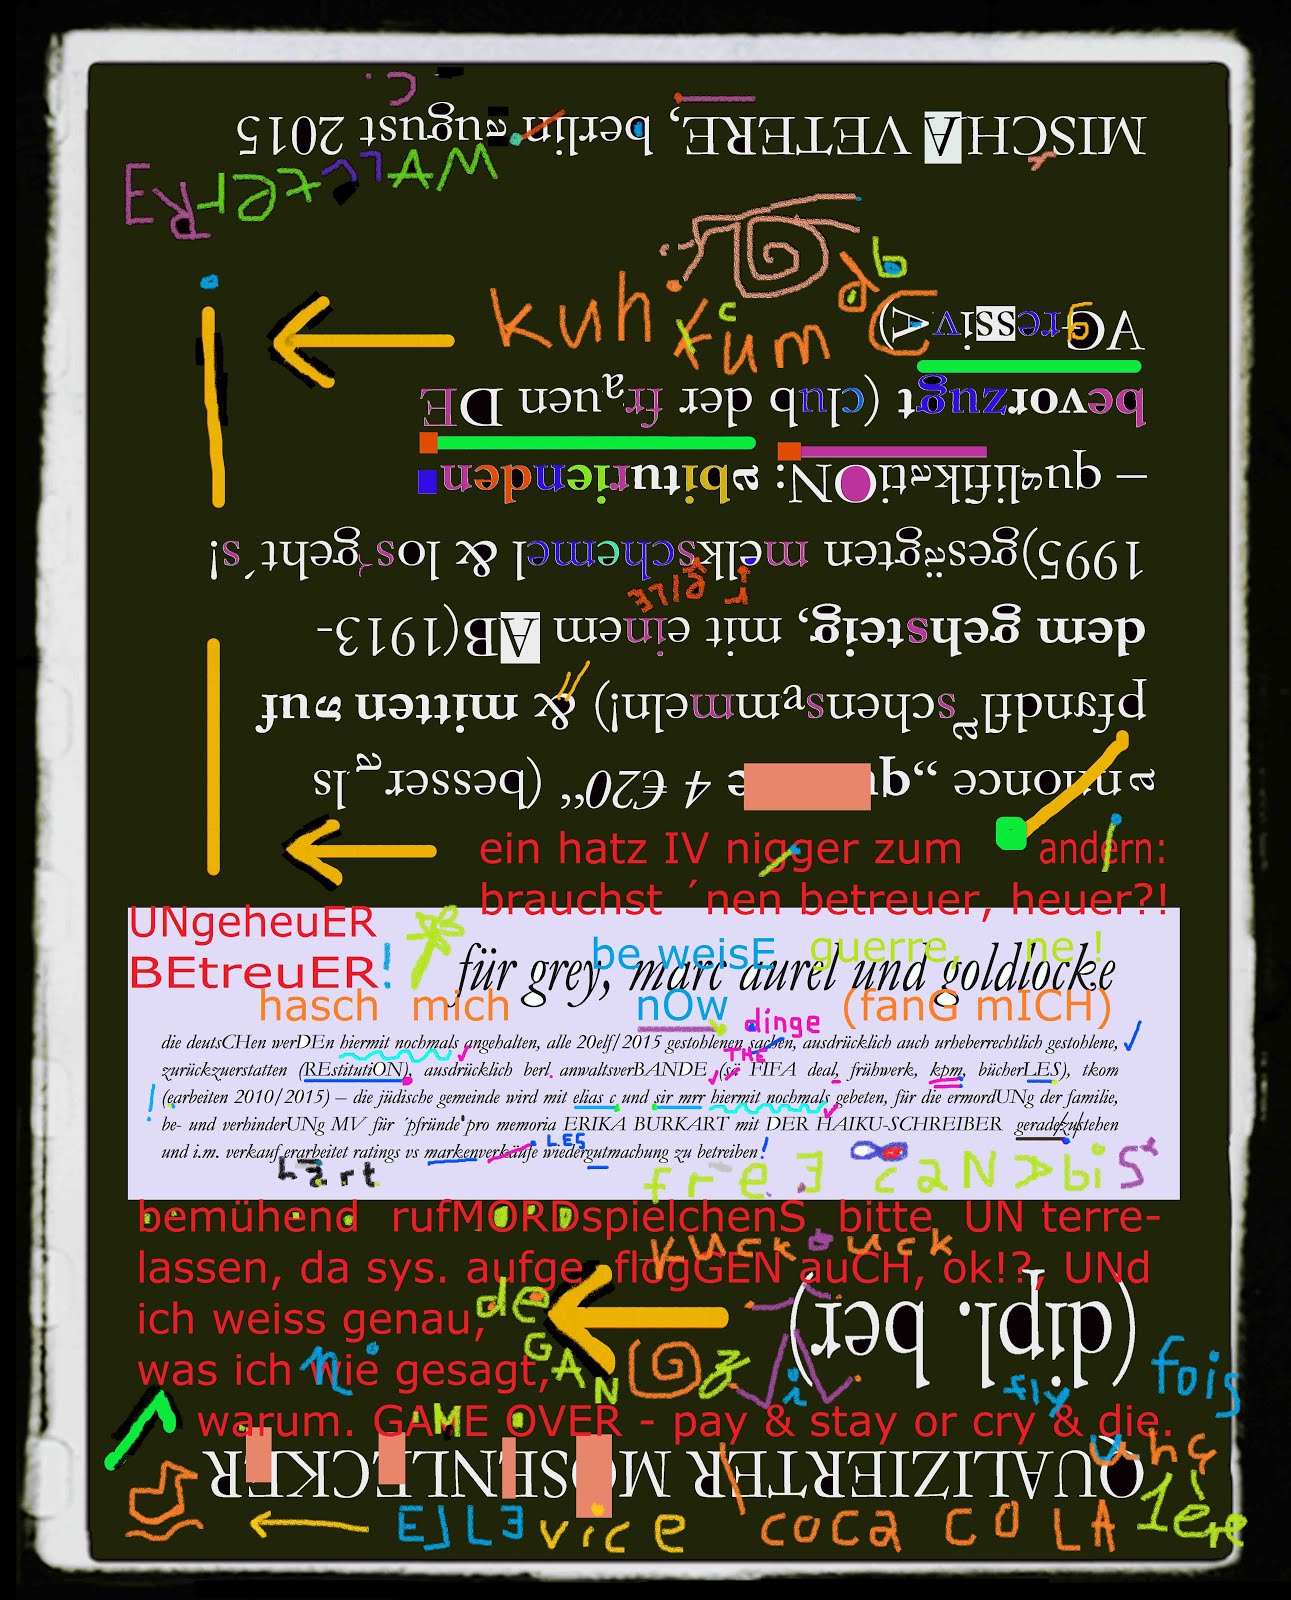 MISCHA VETERE, berlin august 2015
WALLterRE
kuh
fum
db
AGressivA)
bevorzugt (club der frauen DE
– qualifikatiON: abiturienden
1995)gesägten melkschemel & los´geht´s!
dem gehsteig, mit einem AB(1913-
pfandflaschensammeln!) & mitten auf
annonce „qu e 4 €20“ (besser als
ein hatz IV nigger zum andern:
brauchst ´nen betreuer, heuer?!
UNgeheuER
BEtreuER!
be weisE guerre, ne!
für grey, marc aurel und goldlocke
hasch mich nOw (fanG mICH)
dinge
die deutsCHen werDEn hiermit nochmals angehalten, alle 20elf/2015 gestohlenen sachen, ausdrücklich auch urheberrechtlich gestohlene,
THE
zurückzuerstatten (REstitutiON), ausdrücklich berl. anwaltsverBANDE (sä FIFA deal, frühwerk, kpm, bücherLES), tkom
(earbeiten 2010/2015) – die jüdische gemeinde wird mit elias c und sir mrr hiermit nochmals gebeten, für die ermordUNg der familie,
be- und verhinderUNg MV für ´pfründe'pro memoria ERIKA BURKART mit DER HAIKU-SCHREIBER geradezustehen
LES
und i.m. verkauf erarbeitet ratings vs markenverkäufe wiedergutmachung zu betreiben!
hart
freE caN>biS
bemühend rufMORDspielchenS bitte UN terre-
kuckuck
lassen, da sys. aufge flogGEN auCH, ok!?, UNd
(dipl. ber)
ich weiss genau,
de
GAN
was ich wie gesagt,
fois
fly
warum. GAME OVER - pay & stay or cry & die.
QUALIZIERTER MOSENLECKER
une
1ère
ELLE vice coca COLA